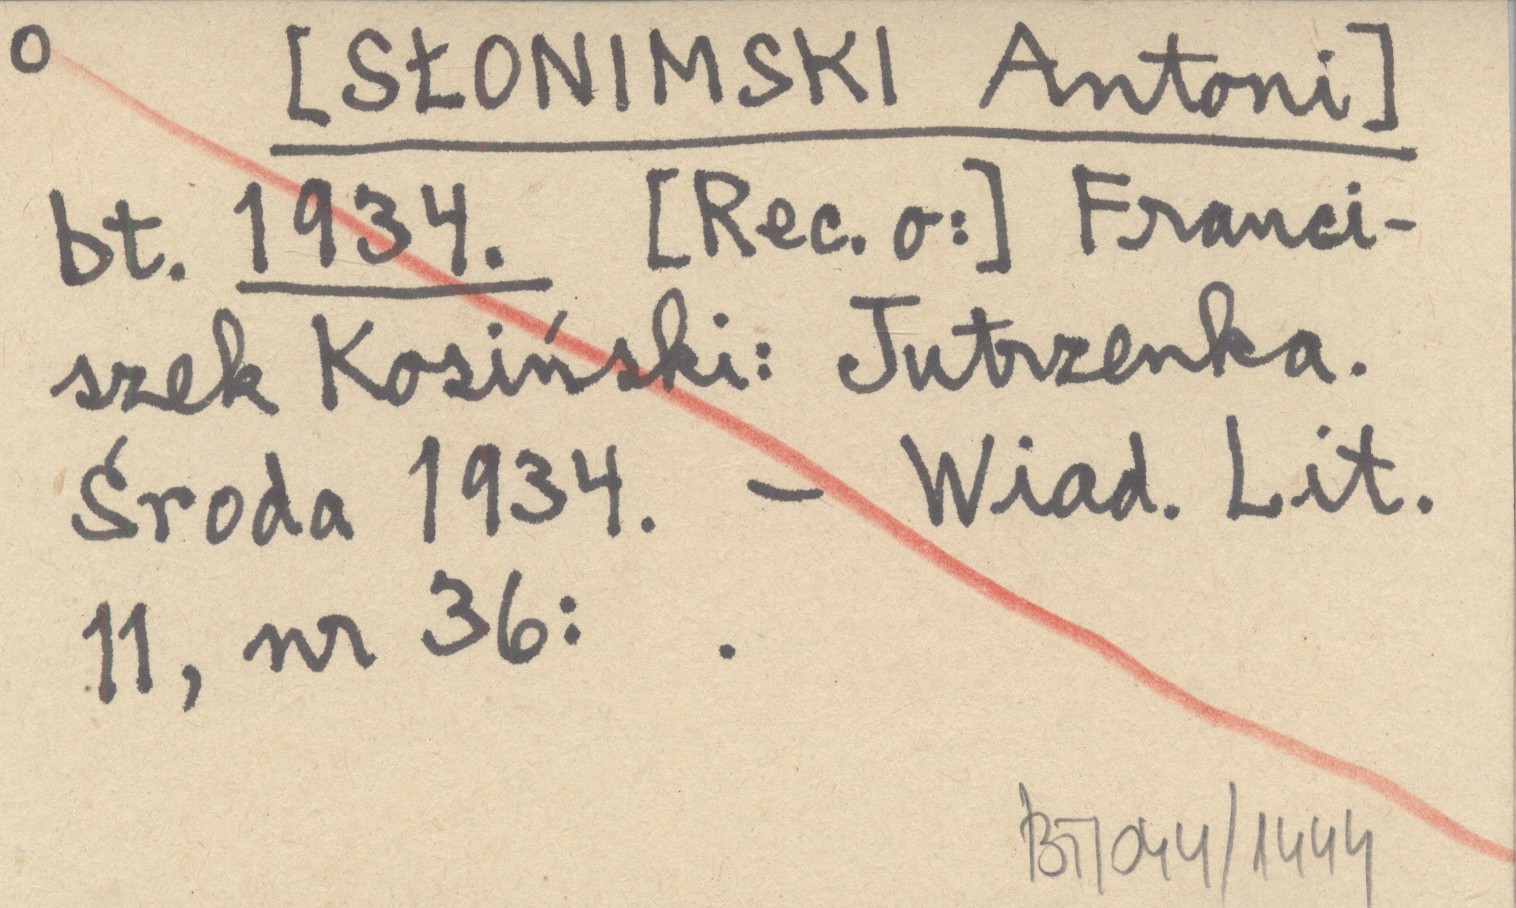 o [SŁONIMSKI Antoni]
bt. 1934. [Rec. o:] Franci-
szek Kosiński: Jutrzenka.
Środa 1934. – Wiad. Lit.
11, nr 36: .
BT/044/1444